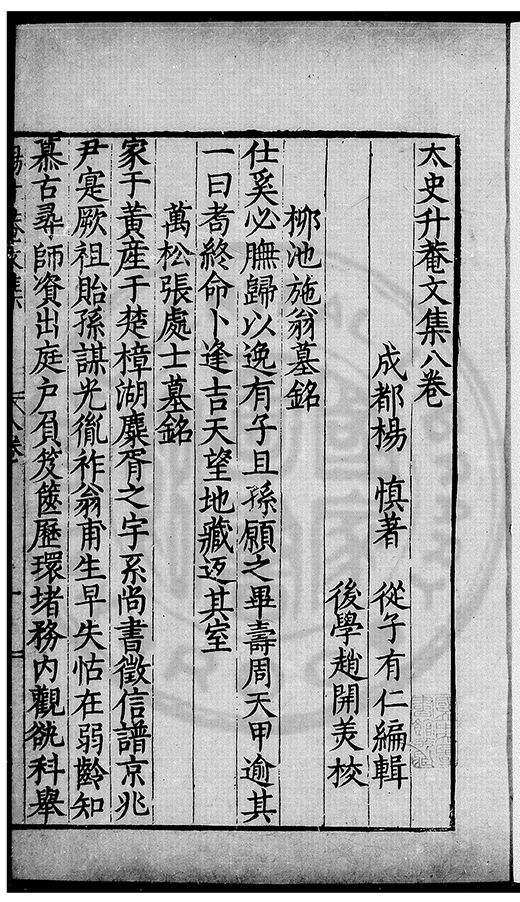 太史升菴文集八卷
成都楊　慎著　從子有仁編輯
後學趙開美校
柳池施翁墓銘
仕奚必膴歸以逸有子且孫願之畢壽周天甲逾其
一曰考終命卜逢吉天望地藏返其室
萬松張處士墓銘
家于黃産于楚樟湖麋胥之宇系尚書徵信譜京兆
尹寔厥祖貽孫謀光胤祚翁甫生早失怙在弱齡知
慕古尋師資出庭戶負笈篋歷環堵務内觀
科舉